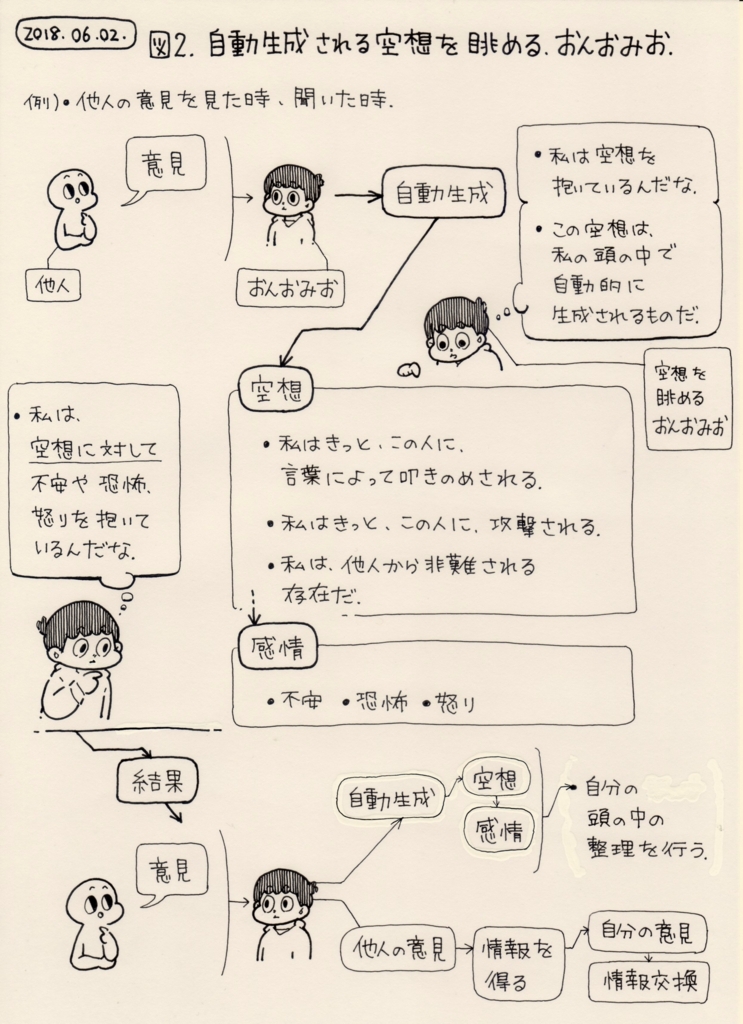 2018.06.02.
図2. 自動生成される空想を眺める、おんおみお.
例)・他人の意見を見た時、聞いた時.
意見
他人
おんおみお
自動生成
・私は空想を
抱いているんだな.
・この空想は、
私の頭の中で
自動的に
生成されるものだ.
空想を
眺める
おんおみお
空想
・私はきっと、この人に、
言葉によって叩きのめされる.
・私はきっと、この人に、攻撃される.
・私は、他人から非難される
存在だ.
・私は、
空想に対して
不安や恐怖、
怒りを抱いて
いるんだな.
感情
・不安 ・恐怖 ・怒り
結果
意見
自動生成
空想
感情
・自分の
頭の中の
整理を行う.
他人の意見
情報を
得る
自分の意見
情報交換